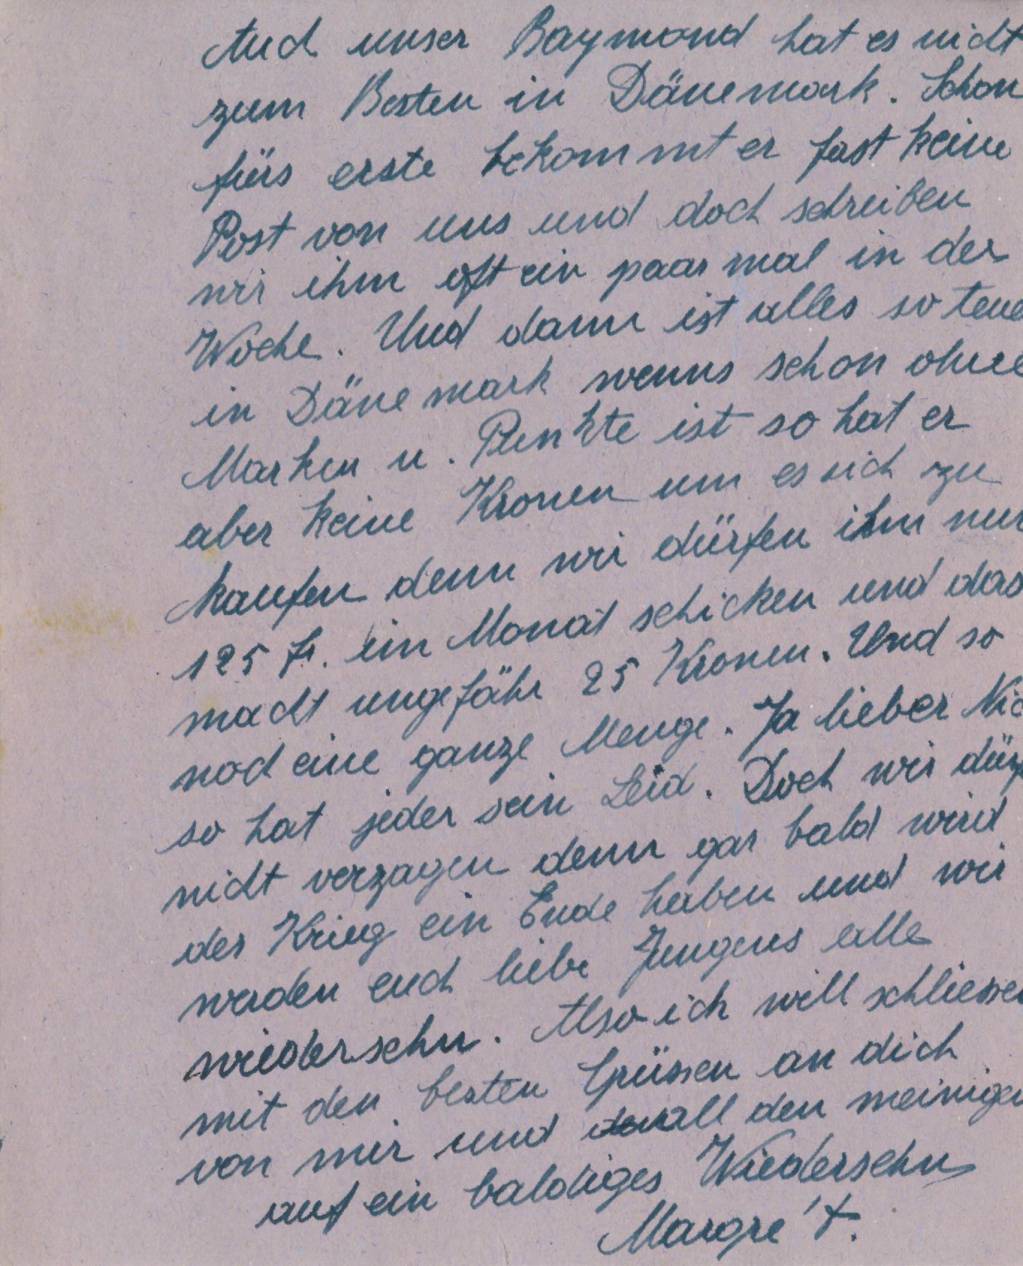 Auch unser Raymond hat es nicht
zum Besten in Dänemark. Schon
fürs erste bekommt er fast keine
Post von uns und doch schreiben
wir ihm oft ein paar mal in der
Woche. Und dann ist alles so teue
in Dänemark wenns schon ohne
Marken u. Punkte ist so hat er
aber keine Kronen um es sich zu
kaufen denn wir dürfen ihm nur
125 fr. im Monat schicken und das
macht ungefähr 25 Kronen. Und so
noch eine ganze Menge. Ja lieber Nic
so hat jeder sein Leid. Doch wir dürf
nicht verzagen denn gar bald wird
der Krieg ein Ende haben und wir
werden euch liebe Jungens alle
wiedersehn. Also ich will schliessen
mit den besten Grüssen an dich
von mir und all den meinigen
auf ein baldiges Wiedersehn